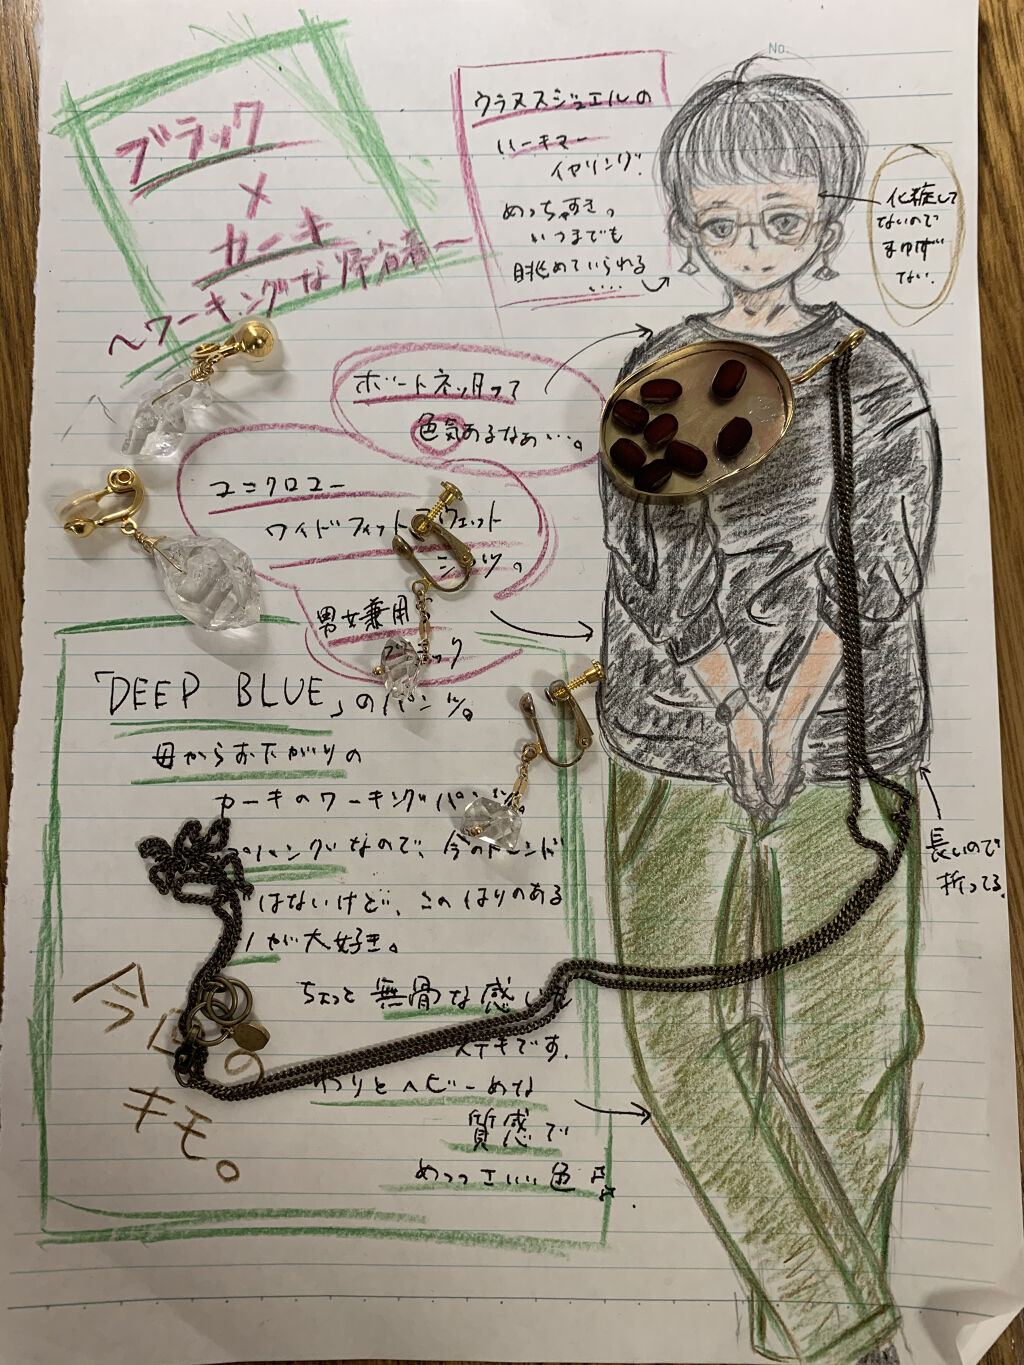 No.
ブラック
×
カーキ
〜ワーキングな帰省着〜
ウラヌスジュエルの
ハーキマー
イヤリング。
めっちゃすき。
いつまでも
眺めていられる
....
化粧して
ないので
まゆげ
ない.
ボートネックって
色気あるなぁ…。
ユニクロユー
ワイドフィットスウェット
シャツ。
男女兼用
ブラック
「DEEP BLUE」のパンツ。
母からおさがりの
カーキのワーキングパンツ。
なので、今のトレンド
はないけど、このはりのある
が大好き。
ちょっと無骨な感じも
ステキです.
わりとヘビーめな
質感で
めっっさいい色♬
長いので
折ってる.
今日の
キモ。